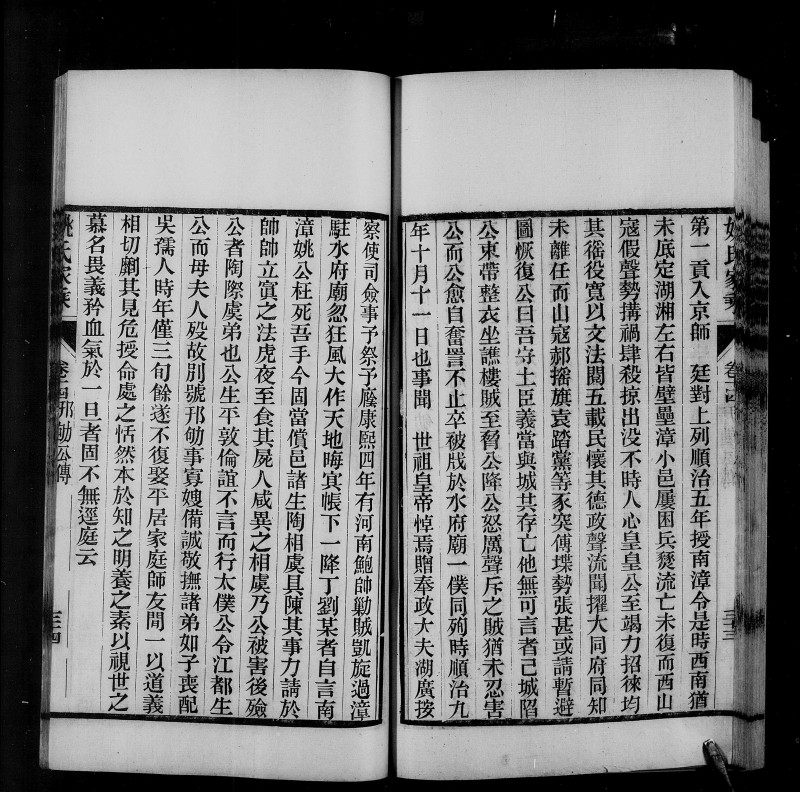 姚氏家乘
卷十四
三十三
第一貢入京師　廷對上列順治五年授南漳令是時西南猶
未底定湖湘左右皆壁壘漳小邑屢困兵燹流亡未復而西山
寇假聲勢搆禍肆殺掠出没不時人心皇皇公至竭力招徠均
其徭役寬以文法閱五載民懷其德政聲流聞擢大同府同知
未離任而山寇郝摇旗袁踏黨等豕突傅堞勢張甚或請暫避
圖恢復公曰吾守土臣義當與城共存亡他無可言者已城陷
公束帶整衣坐譙樓賊至脅公降公怒厲聲斥之賊猶未忍害
公而公愈自奮詈不止卒被戕於水府廟一僕同殉時順治九
年十月十一日也事聞　世祖皇帝悼焉贈奉政大夫湖廣按
察使司僉事予祭予廕康熙四年有河南鮑帥勦賊凱旋過漳
駐水府廟忽狂風大作天地晦冥帳下一降丁劉某者自言南
漳姚公枉死吾手今固當償邑諸生陶相虞具陳其事力請於
帥帥立寘之法虎夜至食其屍人咸異之相虞乃公被害後殮
公者陶際虞弟也公生平敦倫誼不言而行太僕公令江都生
公而母夫人殁故别號邗劬事寡嫂備誠敬撫諸弟如子喪配
吳孺人時年僅三旬餘遂不復娶平居家庭師友間一以道義
相切劘其見危授命處之恬然本於知之明養之素以視世之
慕名畏義矜血氣於一旦者固不無逕庭云
姚氏家乘
卷十四邗劬公傳
三十四